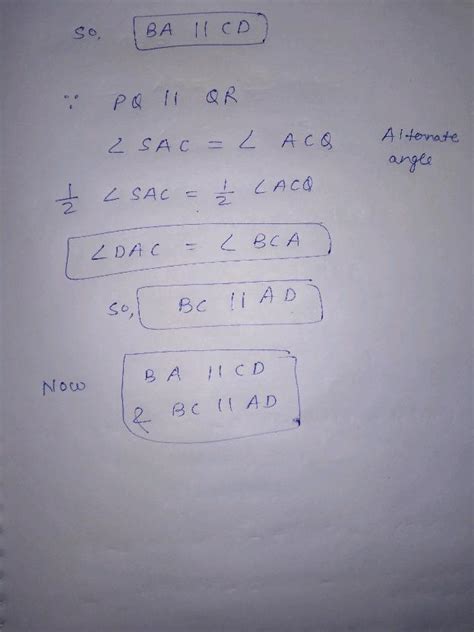 so, BA || CD
∵ PQ || QR
∠SAC = ∠ACQ Alternate angle
1/2 ∠SAC = 1/2 ∠ACQ
∠DAC = ∠BCA
so, BC || AD
Now BA || CD
& BC || AD